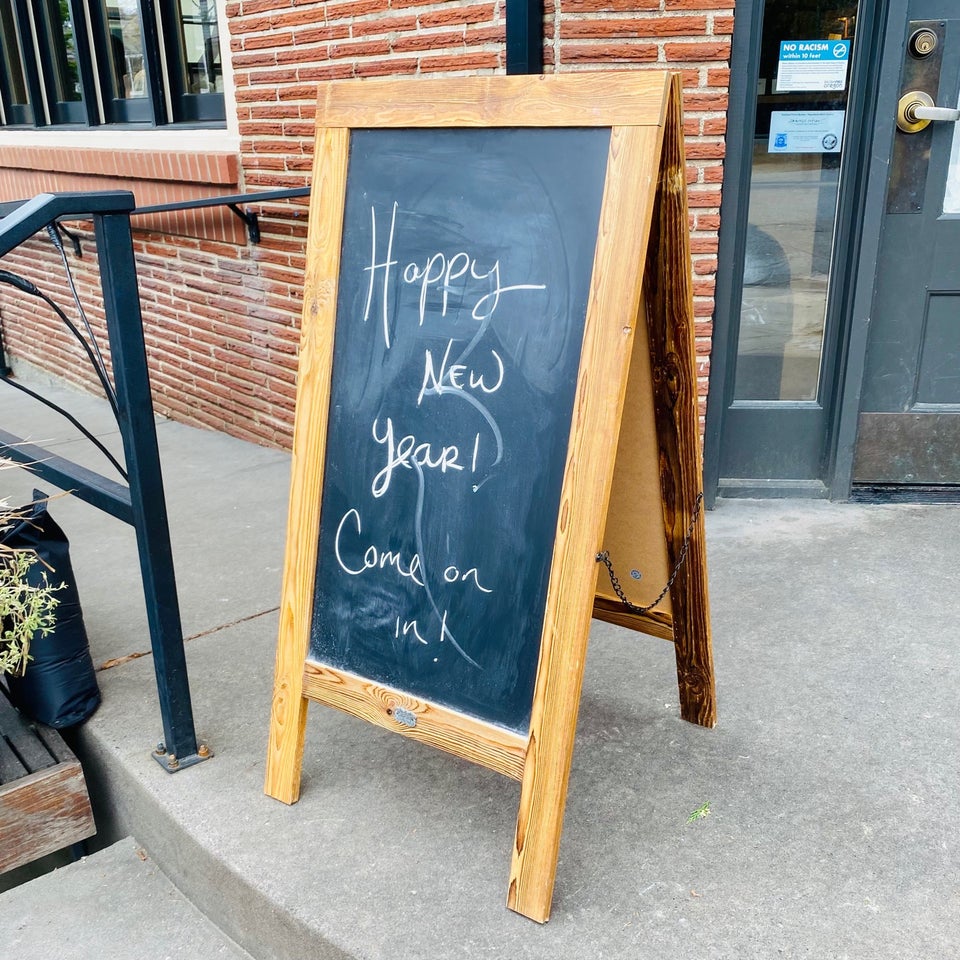 Happy
New
Year!
Come on
in!
NO RACISM
within 10 feet
oregon